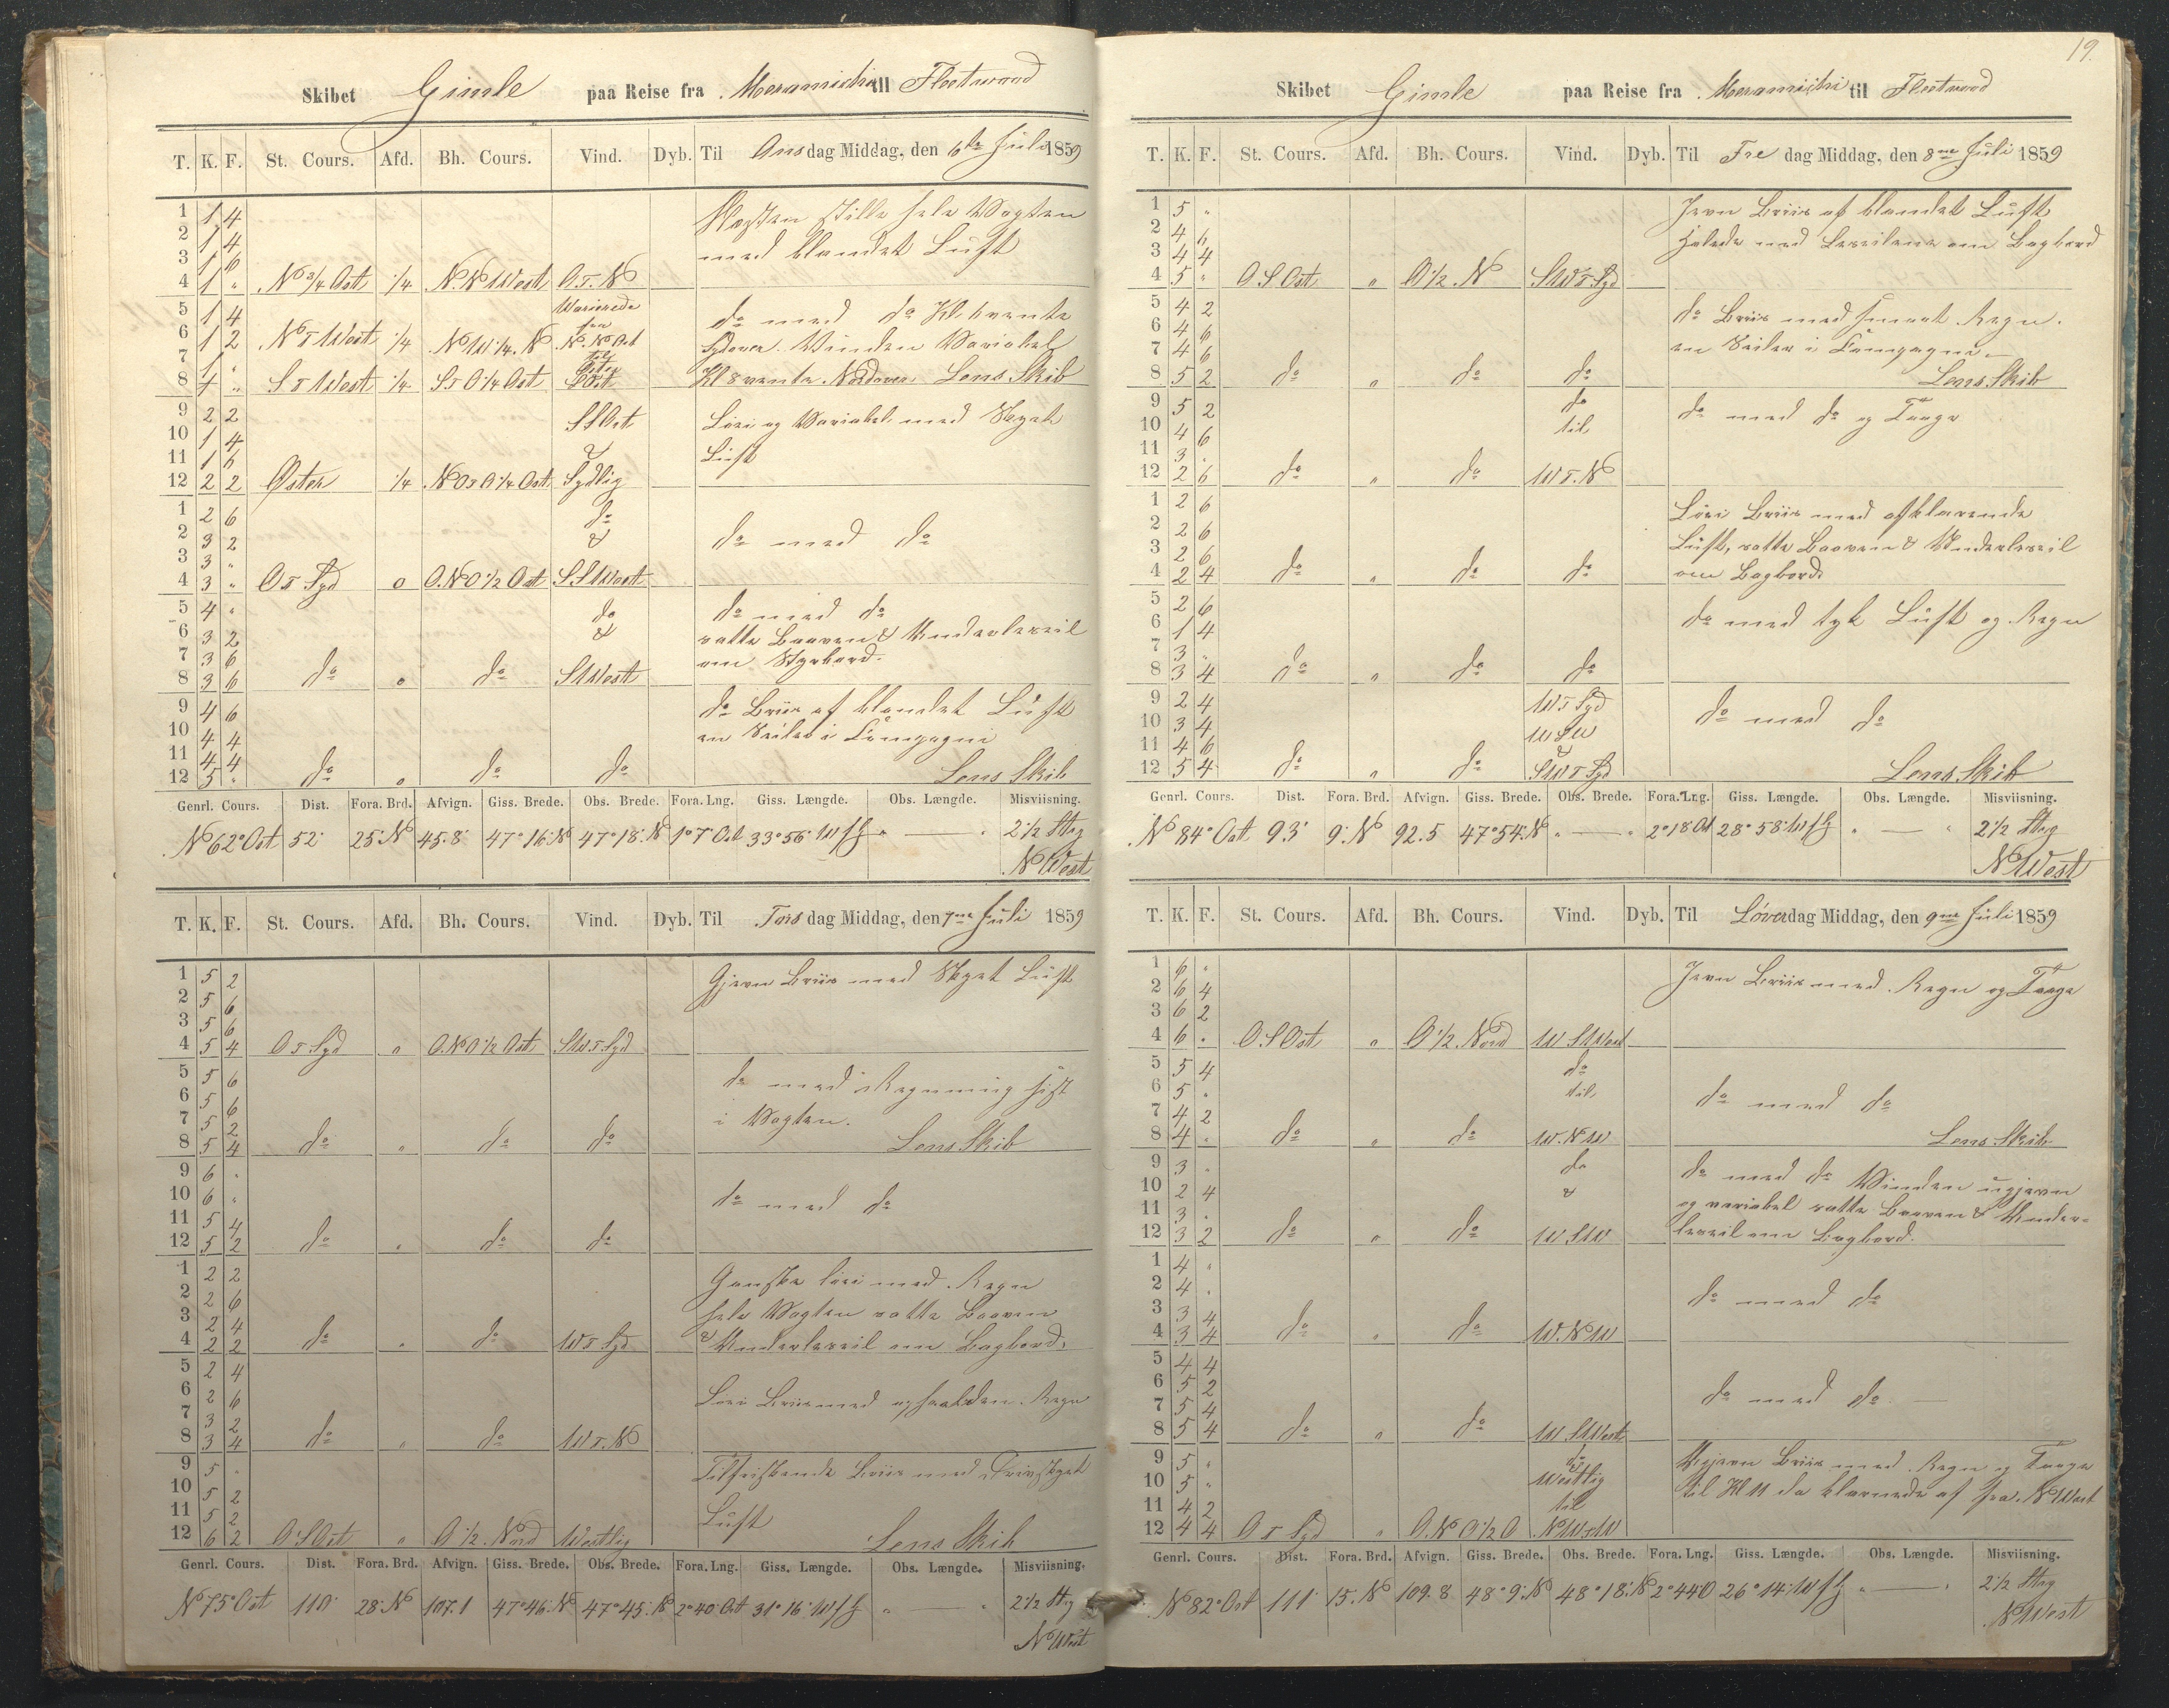 19.
Skibet Gimle paa Reise fra Meramichi til Fleetwood
T. K. F. St. Cours. Afd. Bh. Cours. Vind. Dyb. Til Onsdag Middag, den 6te Juli 1859
1 1 4 Næsten stille hele Vagten
2 1 4 med blandet Luft
3 1 6
4 1 " N 3/4 Ost 1/4 N.N West O.t.N
5 1 4 Varierede do med do Kl. 6 vendte
6 1 2 N t West 1/4 N W 1/4 N fra N.N Ost Sydover. Vinden Variabel
7 1 " til
8 4 " S t West 1/4 S t O 1/4 Ost S Ost Kl 8 vendte Nordover Lens Skib
9 2 2 S S Ost Løri og Variabel med Skyet
10 1 4 & Luft
11 1 6
12 2 2 Øster 1/4 N O t O 1/4 Ost Sydlig
1 2 6 do
2 3 2 & do med do
3 3 "
4 3 " O t Syd o O.N O 1/2 Ost S S West
5 4 " do do med do
6 3 2 & satte Boven & Underleseil
7 3 6 om Styrbord.
8 3 6 do o do S West
9 4 6 do Briis af blandet Luft
10 4 4 en Seiler i Compagni
11 4 4
12 5 " do o do do Lens Skib
Genrl. Cours. Dist. Fora. Brd. Afvign. Giss. Brede. Obs. Brede. Fora. Lng. Giss. Længde. Obs. Længde. Misviisning.
N 62° Ost 52 25 N 45.8 47° 16 N 47° 18 N 1° 7 Ost 33° 56 W f G " — " 2 1/2 Streg
N West
T. K. F. St. Cours. Afd. Bh. Cours. Vind. Dyb. Til Torsdag Middag, den 7me Juli 1859
1 5 2 Gjevn Briis med Skyet Luft
2 5 6
3 5 6
4 5 4 O t Syd " O.N O 1/2 Ost S W t Syd
5 5 6 do med Regnning sist
6 5 6 i Vagten.
7 5 2
8 5 4 do " do do Lens Skib
9 6 "
10 6 " do med do
11 5 4
12 5 2 do " do do
1 2 2 Ganske løri med Regn
2 2 6 hele Vagten satte Boven
3 2 4 & Underleseil om Bagbord.
4 2 2 do " do W t Syd
5 2 4
6 2 6 Løri Briis med Regn
7 3 2
8 3 4 do " do W t. N
9 5 " Tilfriskende Briis med Drivskyet
10 5 2 Luft
11 5 2
12 6 2 O S Ost " O 1/2 Nord Westlig Lens Skib
Genrl. Cours. Dist. Fora. Brd. Afvign. Giss. Brede. Obs. Brede. Fora. Lng. Giss. Længde. Obs. Længde. Misviisning.
N 75° Ost 110 28 N 107.1 47° 46 N 47° 45 N 2° 40 Ost 31° 16 W f G " — " 2 1/2 Streg
N West
Skibet Gimle paa Reise fra Meramichi til Fleetwood
T. K. F. St. Cours. Afd. Bh. Cours. Vind. Dyb. Til Fredag Middag, den 8me Juli 1859
1 5 " Jevn Briis af blandet Luft
2 4 6 med Leseilene om Bagbord
3 4 4
4 5 " O S Ost " O 1/2 N S W t Syd
5 4 2 do Briis med smaat Regn.
6 4 6 en Seiler i Compagnie
7 4 6
8 5 2 do " do do Lens Skib
9 5 2 do do med do og Taage
10 4 6 til
11 3 "
12 2 6 do " do W t. N
1 2 6 Løri Briis med afklarende
2 2 6 Luft, satte Boven & Underleseil
3 2 6 om Bagbord
4 2 4 do " do do
5 2 6 do med tyk Luft og Regn
6 1 4
7 3 "
8 3 4 do " do do
9 2 4 W t Syd
10 3 4 W S W do med do
11 4 6 &
12 5 4 do " do S W t Syd Lens Skib
Genrl. Cours. Dist. Fora. Brd. Afvign. Giss. Brede. Obs. Brede. Fora. Lng. Giss. Længde. Obs. Længde. Misviisning.
N 84° Ost 93 9 N 92.5 47° 54 N " — " 2° 18 Ost 28° 58 W f G " — " 2 1/2 Streg
N West
T. K. F. St. Cours. Afd. Bh. Cours. Vind. Dyb. Til Løverdag Middag, den 9me Juli 1859
1 6 " Jevn Briis med Regn og Taage
2 6 4
3 6 2
4 6 " O.S Ost " O 1/2 Nord W S West
5 5 4 do
6 5 " til do med do
7 4 2
8 4 " do " do W. N W Lens Skib
9 3 " do do med do Vinden ugjevn
10 2 4 & og variabel satte Boven & Under-
11 3 " leseil om Bagbord.
12 3 2 do " do W S W
1 4 "
2 4 " do med do
3 3 4
4 3 4 do " do W. N W
5 4 4
6 5 2 do med do
7 5 4
8 5 4 do " do W S West
9 5 " do Ugjevn Briis med Regn og Taage
10 5 " Westlig til Kl 11 da klarnede af fra N West
11 4 2 til
12 4 4 O t Syd " O.N O 1/2 O N W t W
Genrl. Cours. Dist. Fora. Brd. Afvign. Giss. Brede. Obs. Brede. Fora. Lng. Giss. Længde. Obs. Længde. Misviisning.
N 82° Ost 111 15 N 109.8 48° 9 N 48° 18 N 2° 44 O 26° 14 W f G " — " 2 1/2 Streg
N West